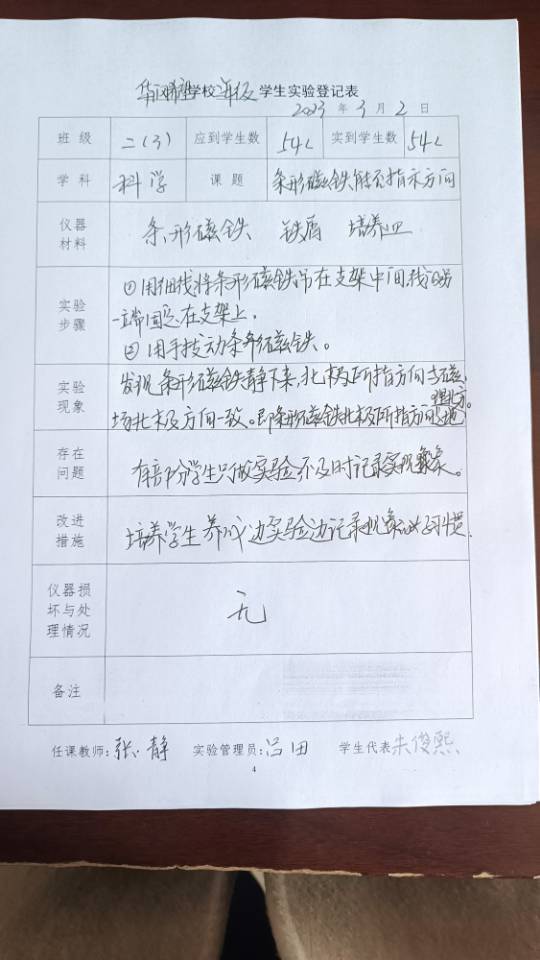 学校二年级学生实验登记表
2023年3月2日
班级 二(3) 应到学生数 54人 实到学生数 54人
学科 科学 课题 条形磁铁能否指示方向
仪器材料 条形磁铁 铁屑 培养皿
实验步骤 ①用细线将条形磁铁吊在支架中间,线的另
一端固定在支架上。
②用手拨动条形磁铁。
实验现象 发现条形磁铁静下来,北极所指方向与磁
场北极方向一致。即条形磁铁北极所指方向是地理北方。
存在问题 有部分学生只做实验不及时记录实现象。
改进措施 培养学生养成边实验边记录现象的好习惯.
仪器损坏与处理情况 无
备注
任课教师:张静 实验管理员:吕田 学生代表 朱俊熙
4